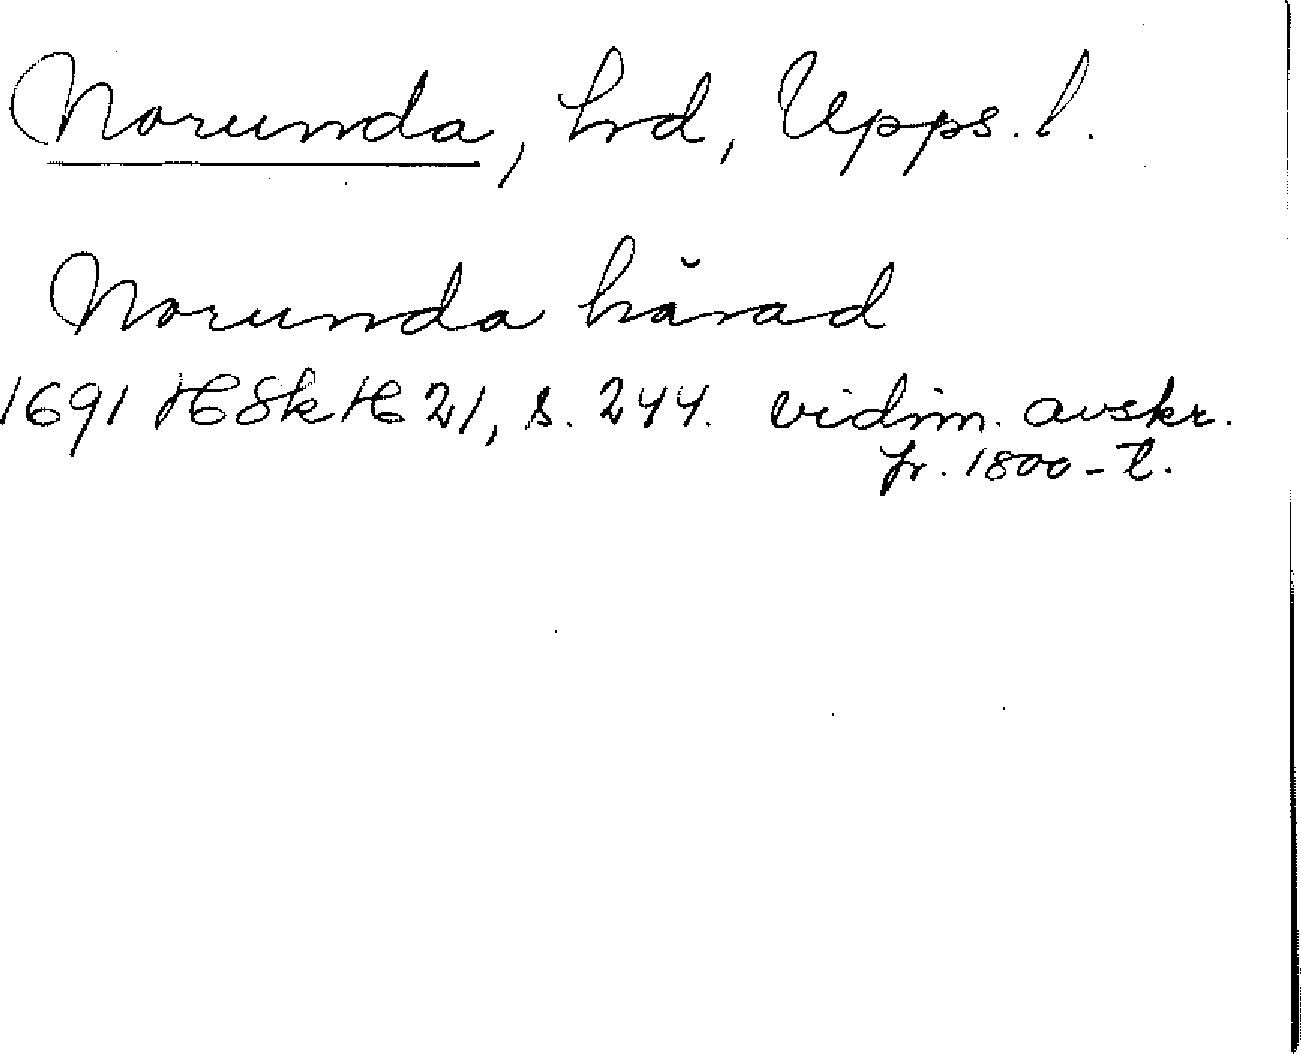 Norunda, hrd, Upps. l.
Norunda härad
1691 HSkH 21, s. 244. vidim. avskr.
fr. 1800-t.